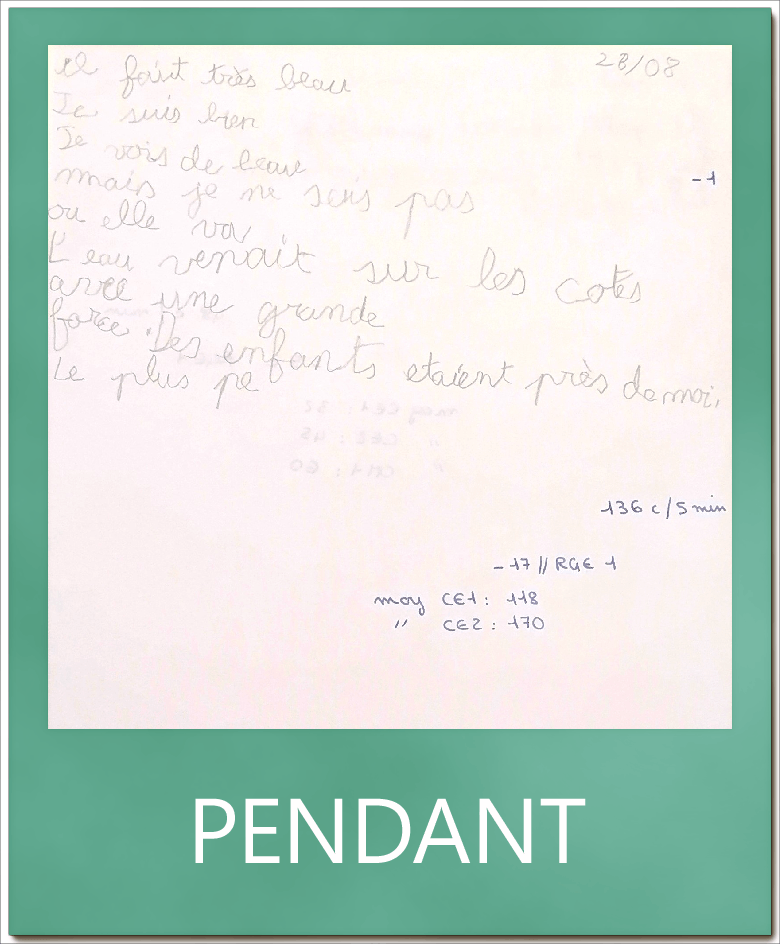 28/08
il fait très beau
Je suis bien
Je vois de beau
-1
mais je ne sais pas
ou elle va
L'eau venait sur les cotes
avec une grande
force. Des enfants etaient près de moi,
Le plus pe
136 c/5min
-17 // RGE 1
moy CE1 : 118
" CE2 : 170
PENDANT